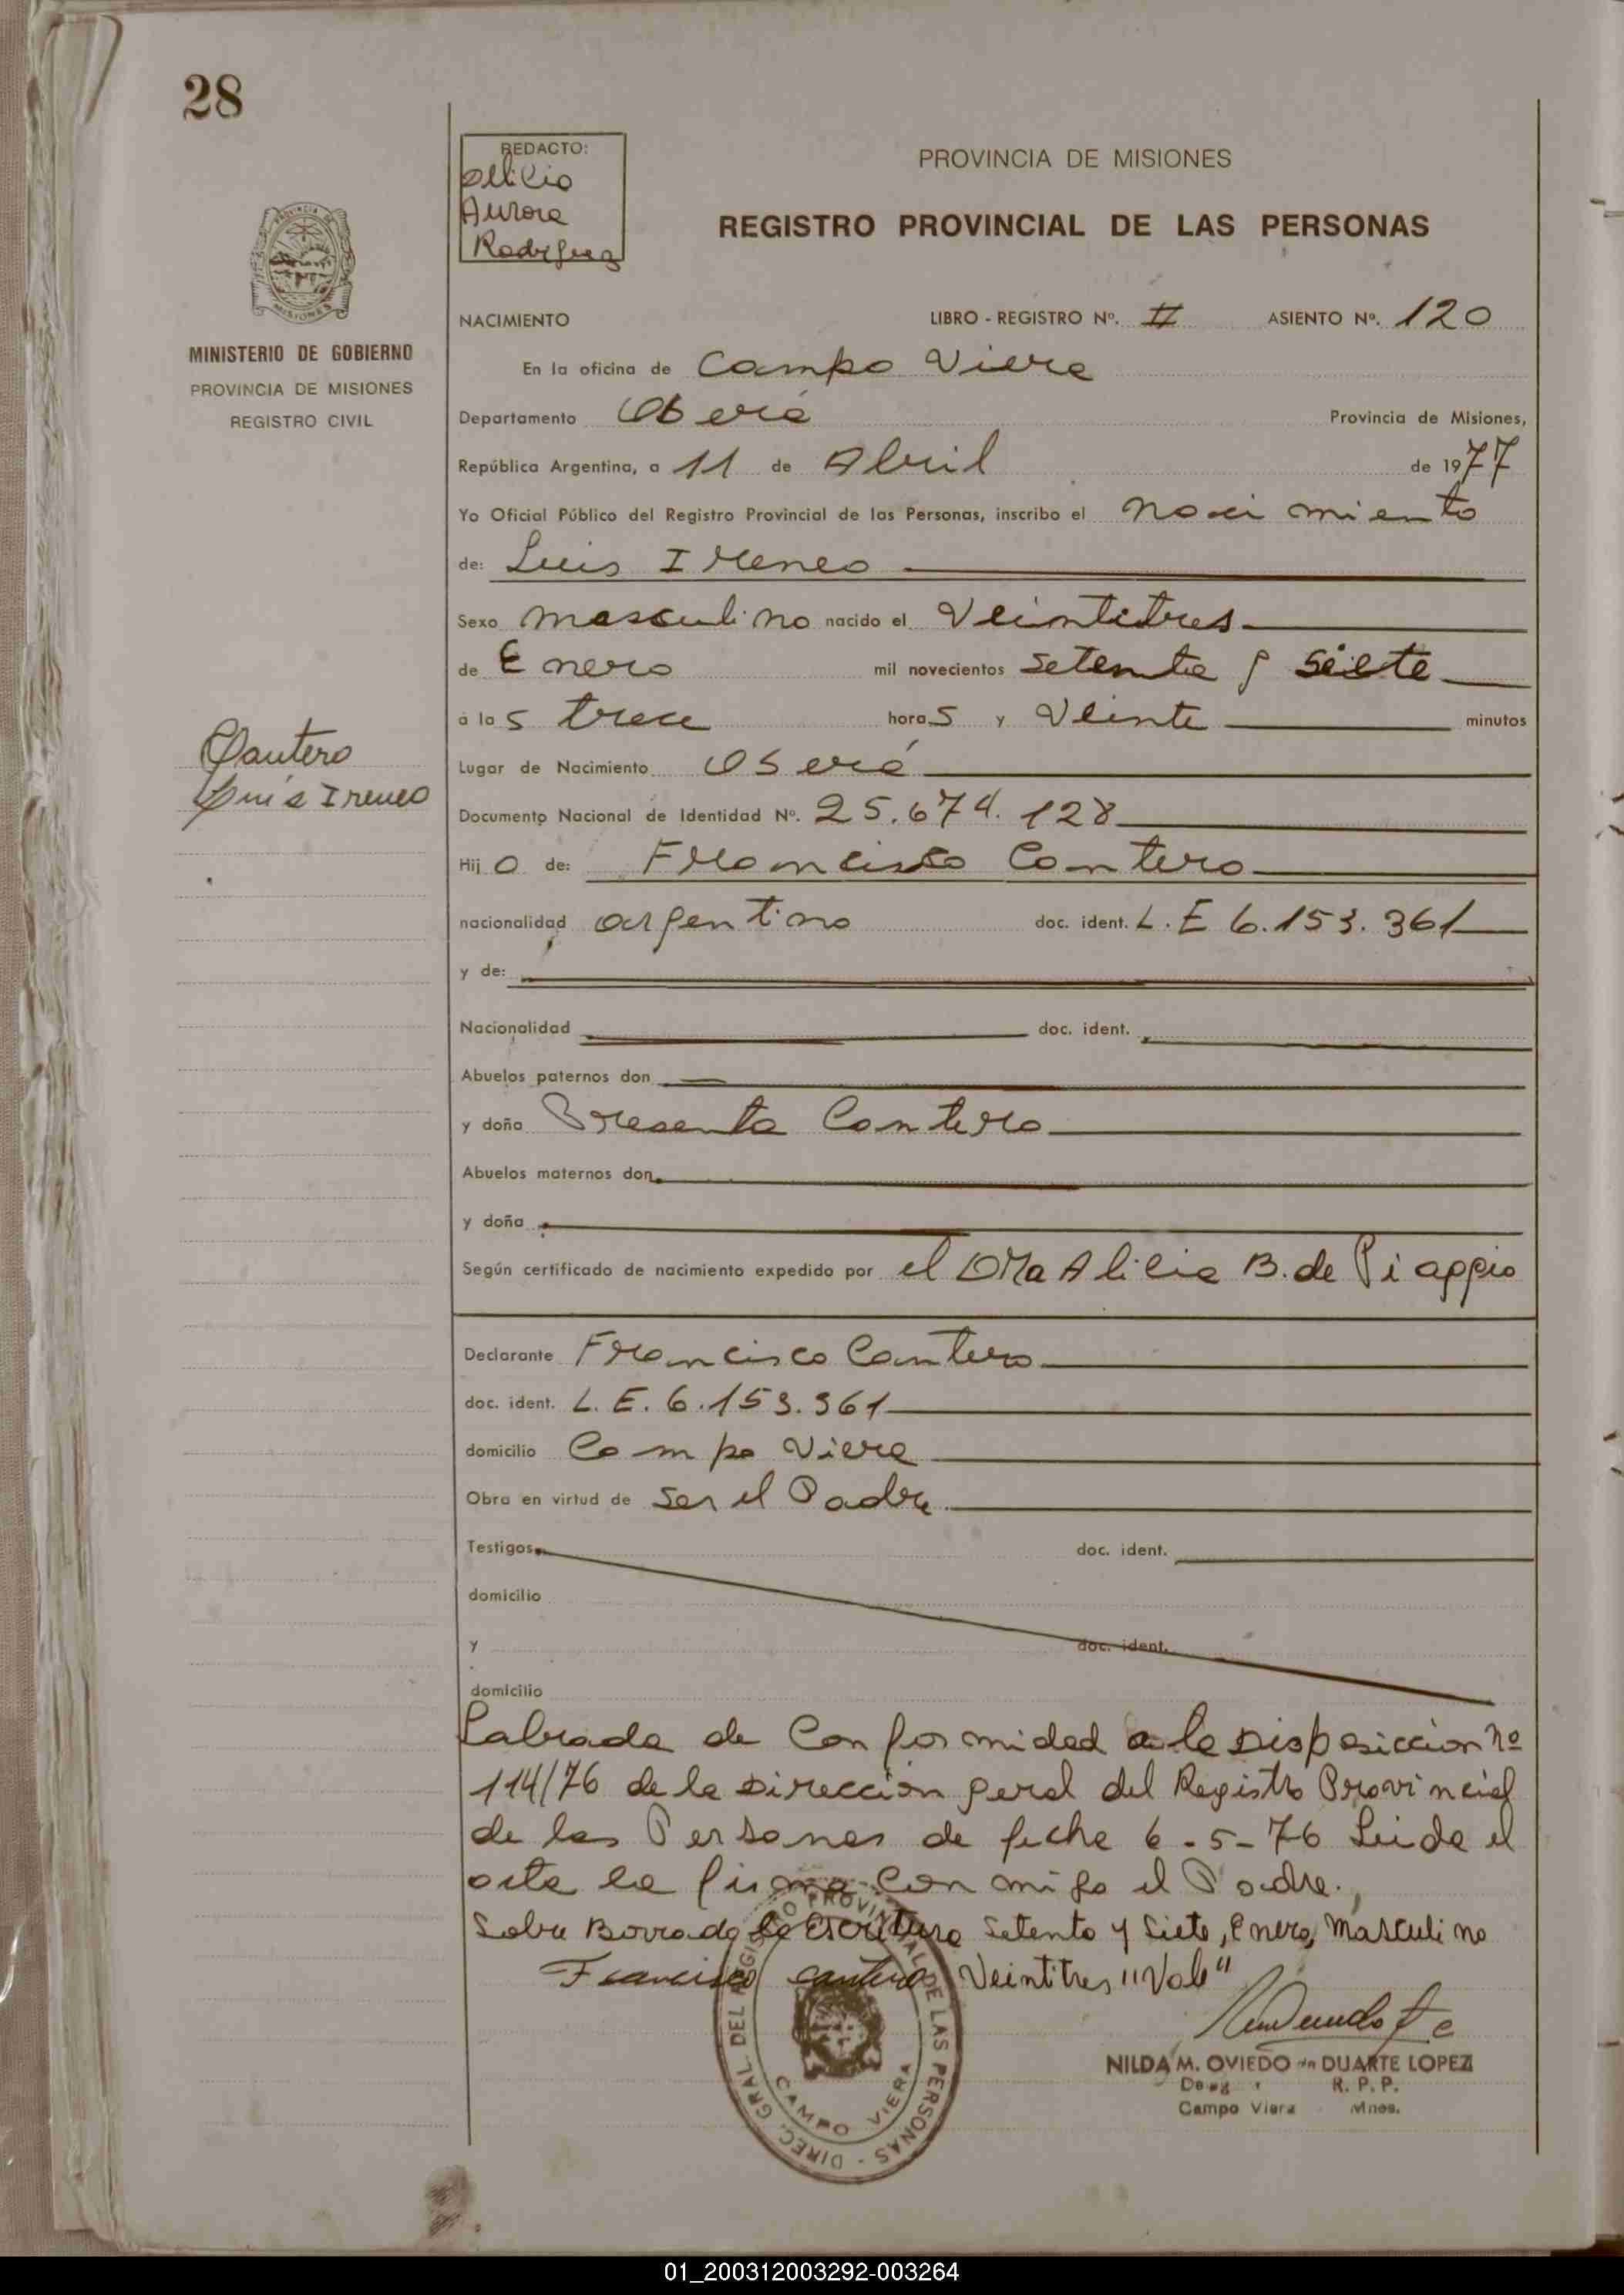 28
REDACTO:
Alicia
Aurora
Rodriguez
PROVINCIA DE MISIONES
REGISTRO PROVINCIAL DE LAS PERSONAS
MINISTERIO DE GOBIERNO
PROVINCIA DE MISIONES
REGISTRO CIVIL
NACIMIENTO LIBRO - REGISTRO Nº. II ASIENTO Nº. 120
En la oficina de Campo Viera
Departamento Oberá Provincia de Misiones,
República Argentina, a 11 de Abril de 1977
Yo Oficial Público del Registro Provincial de las Personas, inscribo el nacimiento
de: Luis Ireneo
Sexo masculino nacido el Veintitres
de Enero mil novecientos setenta y siete
a las trece horas y Veinte minutos
Cantero
Luis Ireneo
Lugar de Nacimiento Oberá
Documento Nacional de Identidad Nº. 25.674.128
Hijo de: Francisco Cantero
nacionalidad argentino doc. ident. L.E 6.153.361
y de:
Nacionalidad doc. ident.
Abuelos paternos don
y doña Presenta Cantero
Abuelos maternos don
y doña
Según certificado de nacimiento expedido por el DRa Alicia B. de Piappio
Declarante Francisco Cantero
doc. ident. L.E. 6.153.361
domicilio Campo Viera
Obra en virtud de ser el Padre
Testigos doc. ident.
domicilio
y doc. ident.
domicilio
Labrada de Conformidad a la Disposición nº
114/76 de la Dirección geral del Registro Provincial
de las Personas de fecha 6-5-76 Leida el
acta la firma Con migo el Padre.
Sobre Borrado la Escritura Setenta y Siete, Enero, Masculino
Francisco cantero Veintitres "Vale"
DIREC. GRAL. DEL REGISTRO PROVINCIAL DE LAS PERSONAS -
CAMPO VIERA
NILDA M. OVIEDO de DUARTE LOPEZ
R. P. P.
Campo Viera Mnes.
01_200312003292-003264